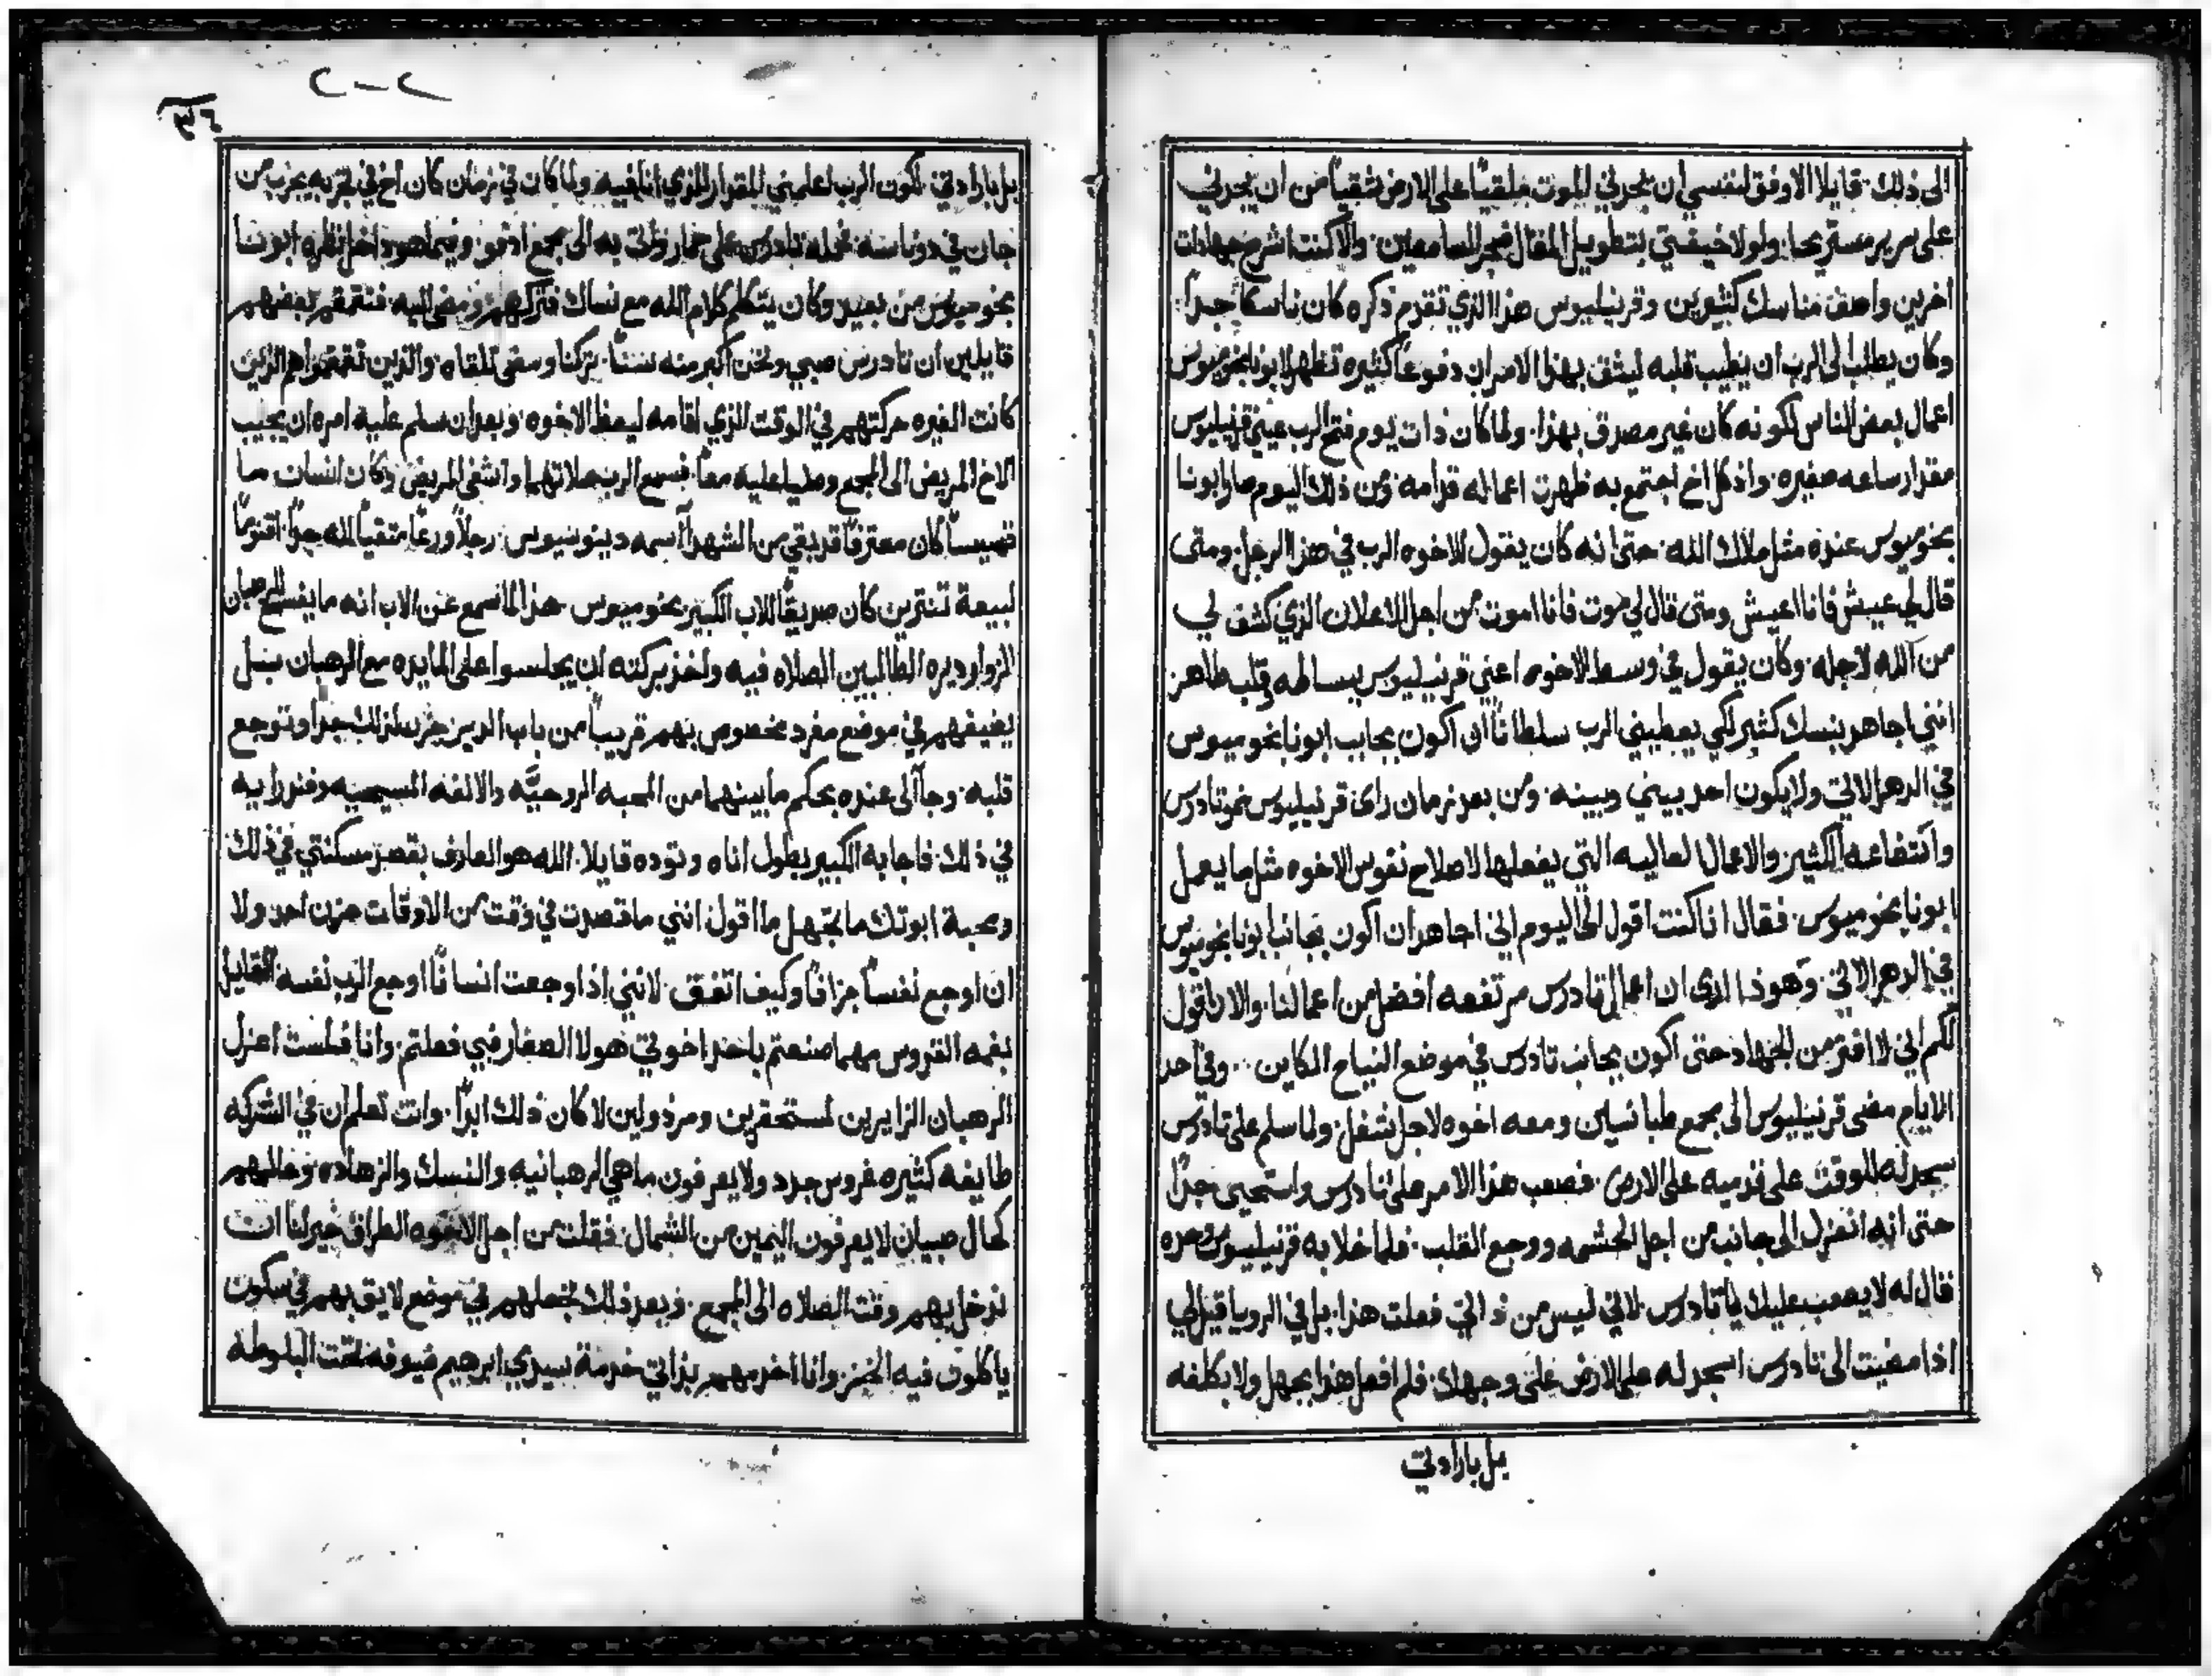 الى ذلك قايلا الاوفق لنفسي ان يجدني الموت ملقيًا على الارض شقيًا من ان يجدني
على سرير مستريحا. ولولا خيفتي بتطويل المقال ضجر السامعين. والا كنت اشرح جهادات
اخرين واصف مناسك كثيرين وقرنيليوس هذا الذي تقدم ذكره كان ناسكا جدًا.
وكان يطلب الى الرب ان يطيب قلبه ليثق بهذا الامر ان دفوعًا كثيره تظهر لابونا بخوميوس
اعمال بعض الناس لكونه كان غير مصدق بهذا. ولما كان ذات يوم فتح الرب عيني قرنيليوس
مقدار ساعه صغيره. واذ كل اخ اجتمع به ظهرت اعماله قدامه ومن ذلك اليوم صار ابونا
بخوميوس عنده مثل ملاك الله. حتى انه كان يقول للاخوه الرب في هذا الرجل. ومتى
قال لي عيش فانا اعيش ومتى قال لي موت فانا اموت من اجل الاعلان الذي كشف لي
من الله لاجله. وكان يقول في وسط الاخوه اعني قرنيليوس ببساطه وقلب طاهر
انني اجاهد بنسك كثير لكي يعطيني الرب سلطانًا ان اكون بجانب ابونا بخوميوس
في الدهر الاتي ولا يكون احد بيني وبينه. ومن بعد زمان راى قرنيليوس نمو تادرس
وانتفاعه الكثير والاعمال العاليه التي يفعلها لاصلاح نفوس الاخوه مثل ما يعمل
ابونا بخوميوس. فقال انا كنت اقول الى اليوم اني اجاهد ان اكون بجانب ابونا بخوميوس
في الدهر الاتي. وهوذا ارى ان اعمال تادرس مرتفعه افضل من اعمالنا. والان اقول
لكم اني لا افتر من الجهاد حتى اكون بجانب تادرس في موضع النياح الكاين. وفي احد
الايام مضى قرنيليوس الى مجمع طبانسين ومعه اخوه لاجل شغل. ولما سلم على تادرس
سجد له للوقت على قدميه على الارض. فصعب هذا الامر على تادرس واستحيى جدًا
حتى انه انعزل الى جانب من اجل الحشمه ووجع القلب. فلما خلا به قرنيليوس وحده
قال له لا يصعب عليك يا تادرس. لاني ليس من ذاتي فعلت هذا. بل في الرويا قيل لي
اذا مضيت الى تادرس اسجد له على الارض على وجهك. فلم افعل هذا بجهل ولا بكلفه
بل بارادتي
بل بارادتي لكون الرب اعلمني المقدار الذي انا فيه ولما كان في زمان كان اخ في تجربه يجرب من
جان في دوناسه فحمله تادرس على حمار واتى به الى مجمع ادفو وفيما هو داخل نظره ابونا
بخوميوس من بعيد وكان يتكلم كلام الله مع نساك فتركهم ومضى اليه فتقمقم بعضهم
قايلين ان تادرس صبي ونحن اكبر منه سننًا. تركنا ومضى للقاه والذين تقمقموا هم الذين
كانت الغيره حركتهم في الوقت الذي اقامه ليعظ الاخوه وبعد ان سلم عليه امره ان يجيب
الاخ المريض الى المجمع وصليا عليه معًا فسمع الرب صلاتهما واشفى المريض وكان انسان ما
قسيسًا كان معترفًا قديقي من الشهدا اسمه ديونسيوس. رجلاً ورعًا متقيًا لله جدًا. اقنومًا
لبيعة تنترين كان صديقًا للاب الكبير بخوميوس هذا لما سمع عن الاب انه ما يفسح للرهبان
الزوار ديره الطالبين الصلاه فيه واخذ بركته ان يجلسوا على المايده مع الرهبان بل
يضيفهم في موضع مفرد مخصوص بهم قريبًا من باب الدير حزن لذلك جدا وتوجع
قلبه. وجا الى عنده بحكم ما بينهما من المحبه الروحيَّه والالفه المسيحيه وفند رايه
في ذلك فاجابه الكبير بطول اناه وتوده قايلا. الله هو العارف بقصد مسكنتي في ذلك
ومحبة ابوتك ما تجهل ما اقول انني ما قصدت في وقت من الاوقات حزن احد ولا
ان اوجع نفسًا جزافًا وكيف اتفق. لانني اذا وجعت انسانًا اوجع الرب نفسه القايل
بفمه القدوس مهما صنعتم باحد اخوتي هولا الصغار فبي فعلتم. وانا فلست اعزل
الرهبان الزايرين لمستحقرين ومرذولين لا كان ذلك ابدًا. وانت تعلم ان في الشركه
طايفه كثيره غروس جدد ولا يعرفون ما هي الرهبانيه والنسك والزهاده وحالهم
كحال صبيان لا يعرفون اليمين من الشمال. فقلت من اجل الاخوه الطراق خير لنا ان
ندخل بهم وقت الصلاه الى المجمع. وبعد ذلك نجعلهم في موضع لايق بهم في سكون
ياكلون فيه الخبز. وانا اخدمهم بذاتي خدمة سيدي ابرهيم ضيوفه تحت البلوطه